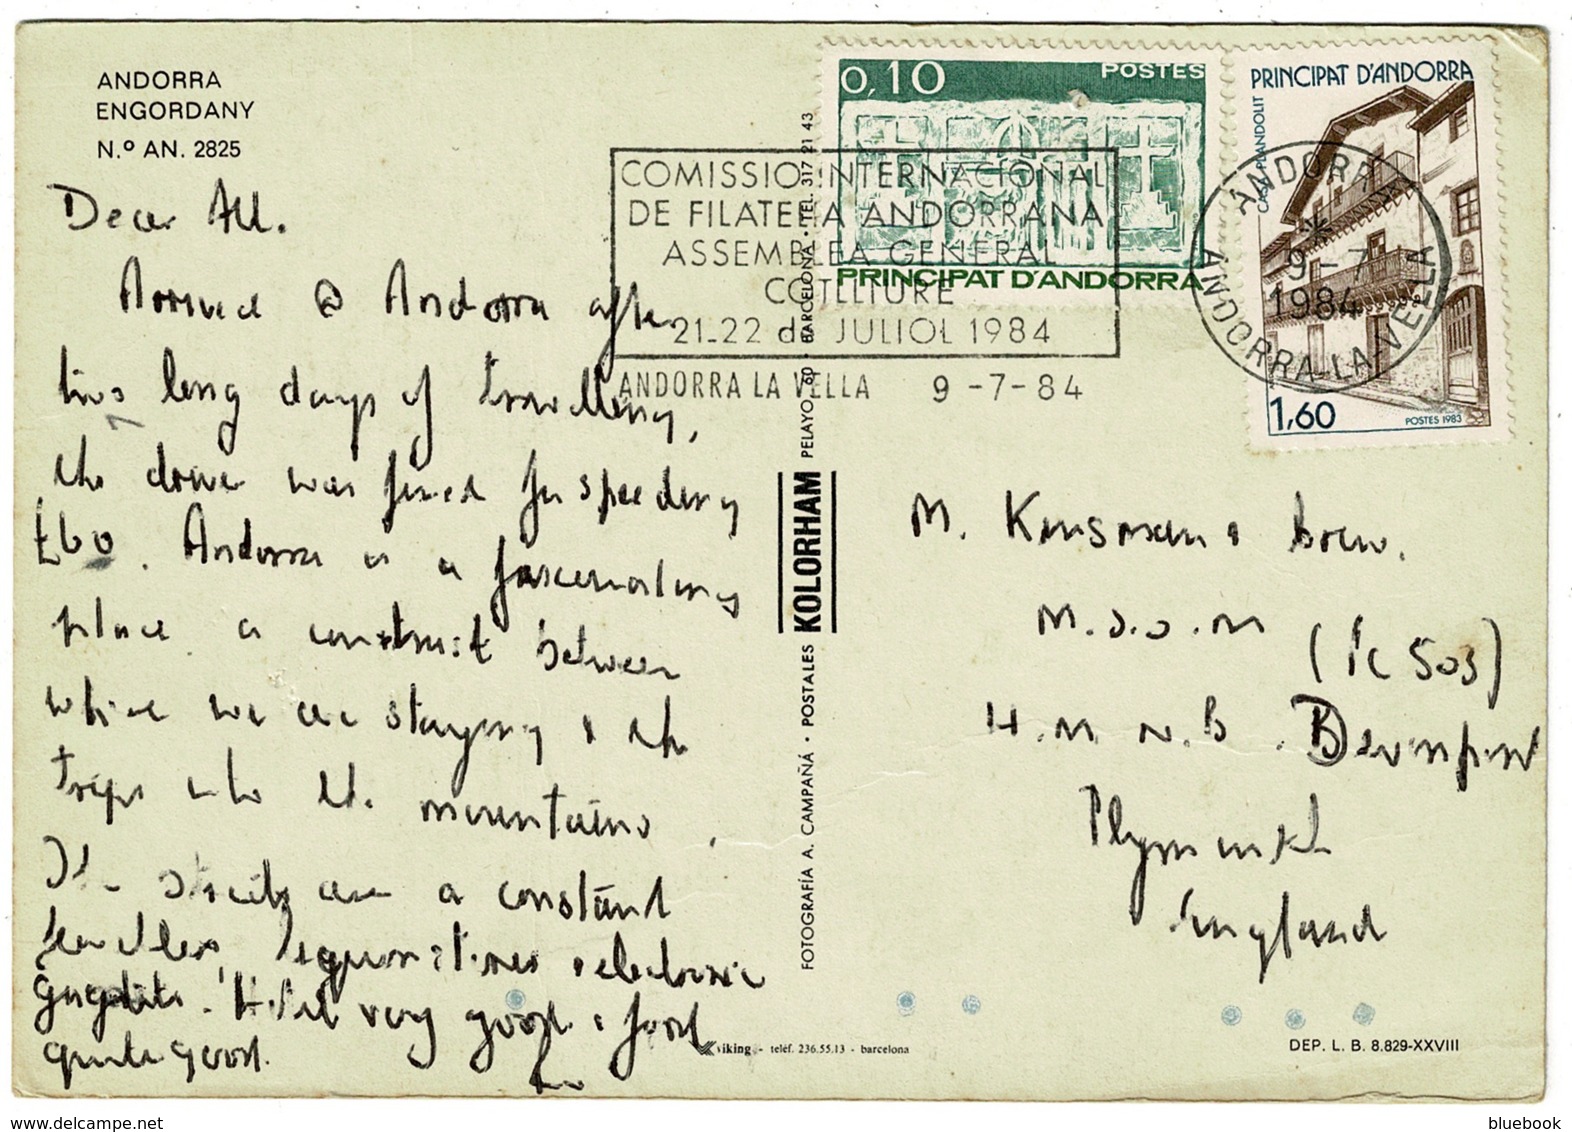 ANDORRA
ENGORDANY
N.º AN. 2825
Dear All.
Arrived @ Andorra after
two long days of travelling,
the driver was fined for speeding
£60. Andorra is a fascinating
place a contrast between
where we are staying & the
trips into the mountains.
The streets are a constant
electronic
gadgets. Hotel very good & food
quite good.
0,10
POSTES
PRINCIPAT D'ANDORRA
PRINCIPAT D'ANDORRA
CASA PLANDOLIT
1,60
POSTES 1983
COMISSIO INTERNACIONAL
DE FILATELIA ANDORRANA
ASSEMBLEA GENERAL
COTLLIURE
21-22 de JULIOL 1984
ANDORRA LA VELLA 9-7-84
ANDORRA
*
9-7
1984
ANDORRA-LA-VELLA
FOTOGRAFÍA A. CAMPAÑÁ · POSTALES KOLORHAM PELAYO, 60 · BARCELONA · TEL. 317 21 43
M. Kinsman & Crew.
M.O.O.M (PC 503)
H.M.N.B. Devonport
Plymouth
England
viking - teléf. 236.55.13 - barcelona
DEP. L. B. 8.829-XXVIII
www.delcampe.net
bluebook